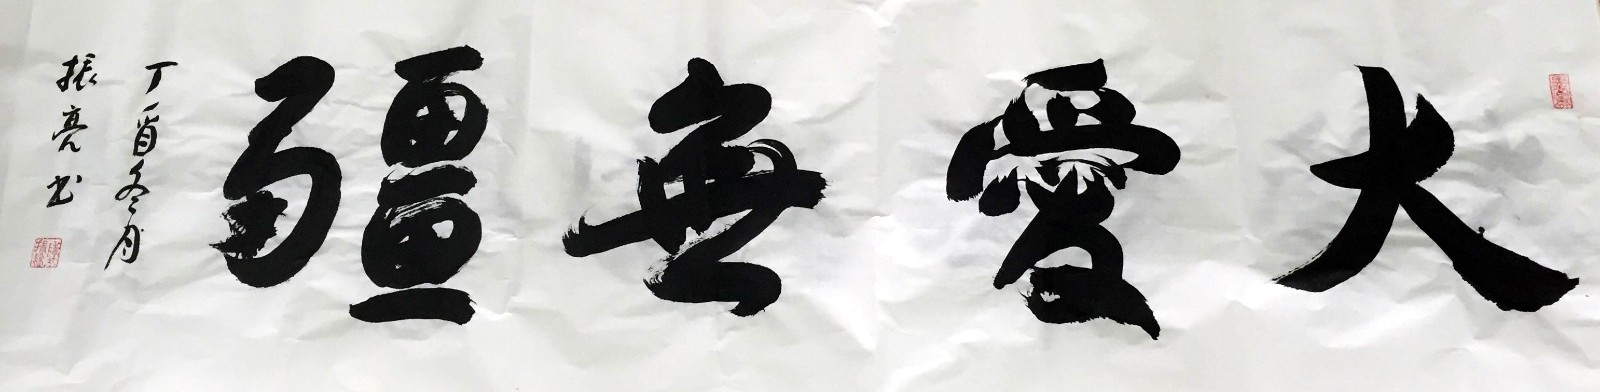 大愛無疆
丁酉冬月
振亮书